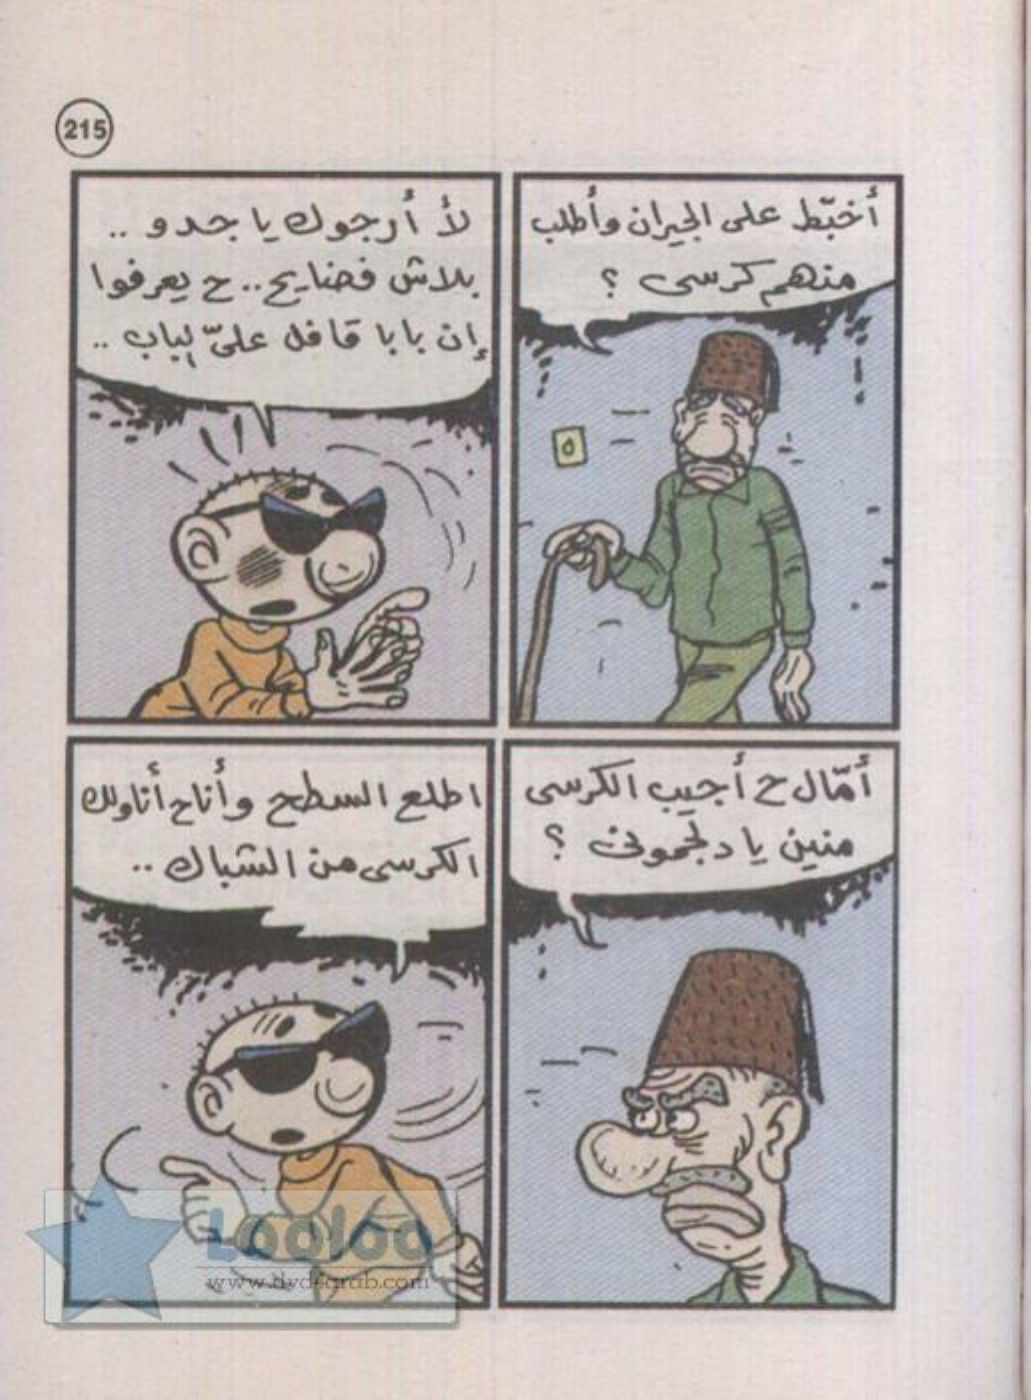 215
أخبّط على الجيران وأطلب
منهم كرسى ؟
لأ أرجوك يا جدو ..
بلاش فضايح.. ح يعرفوا
إن بابا قافل علىّ الباب ..
أمّال ح أجيب الكرسى
منين يا دلجمونى ؟
اطلع السطح وأنا ح أناولك
الكرسى من الشباك ..
Looloo
www.dvd4arab.com